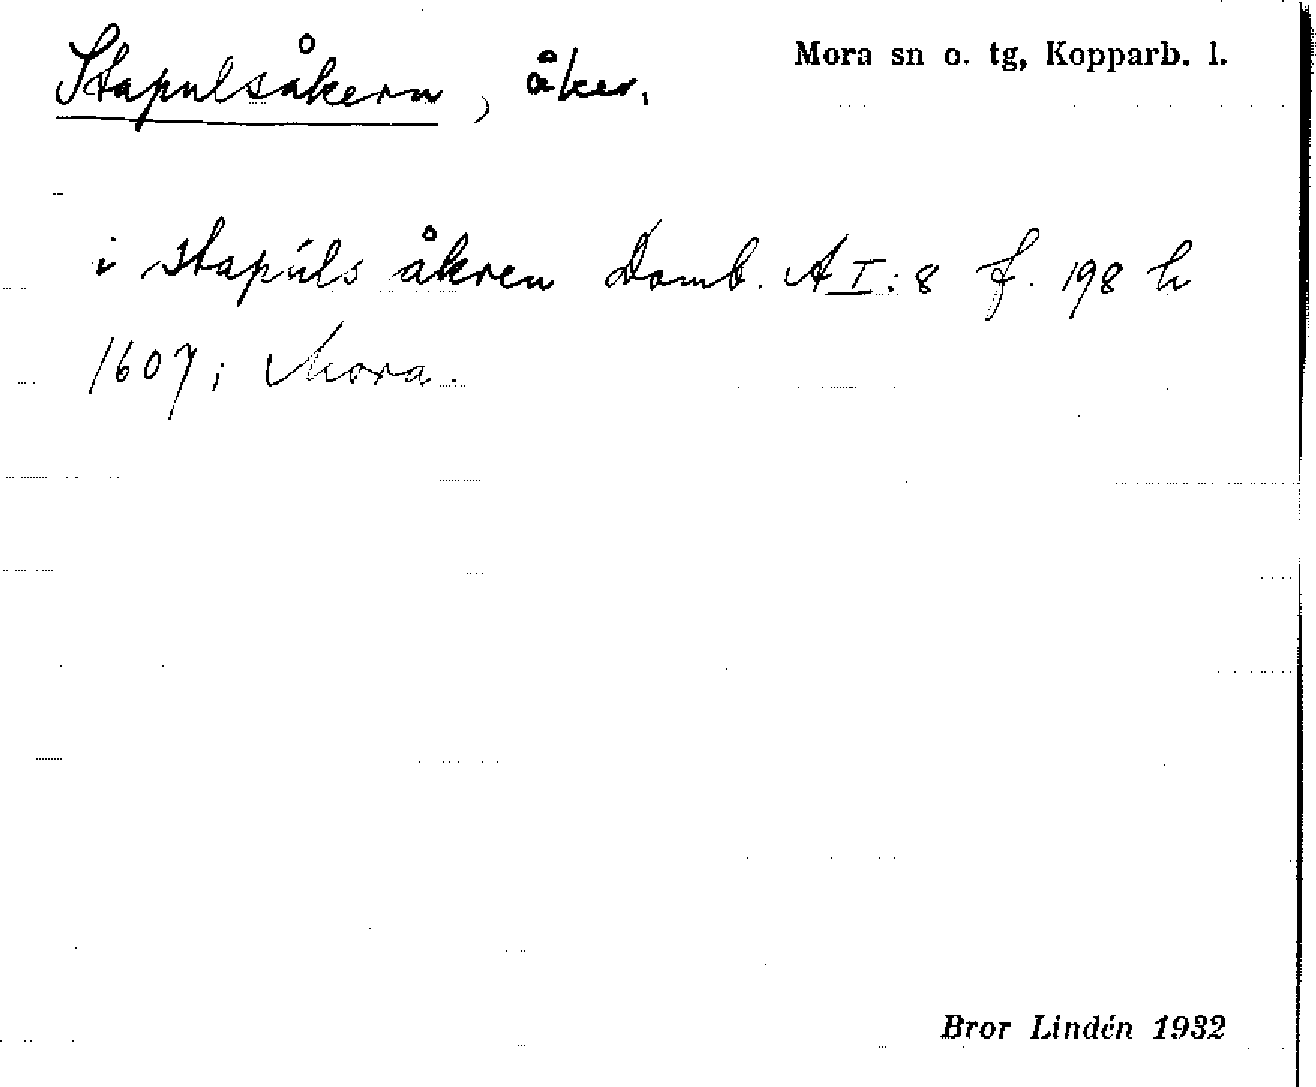 Stapulsåkern, åker.
Mora sn o. tg, Kopparb. l.
i stapúls åkren Domb. A I: 8 f. 198 h
1607; Mora.
Bror Lindén 1932